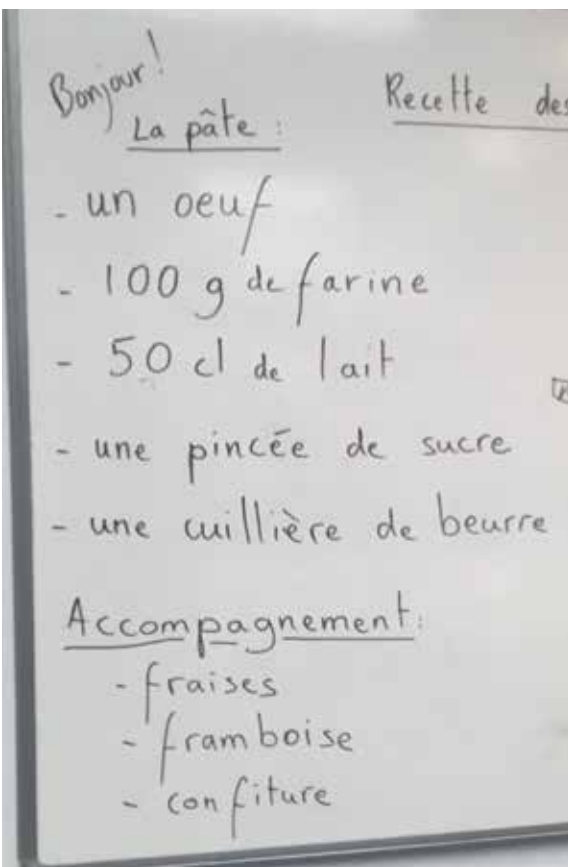 Bonjour!
Recette des
La pâte :
- un oeuf
- 100 g de farine
- 50 cl de lait
- une pincée de sucre
- une cuillière de beurre
Accompagnement:
- fraises
- framboise
- confiture